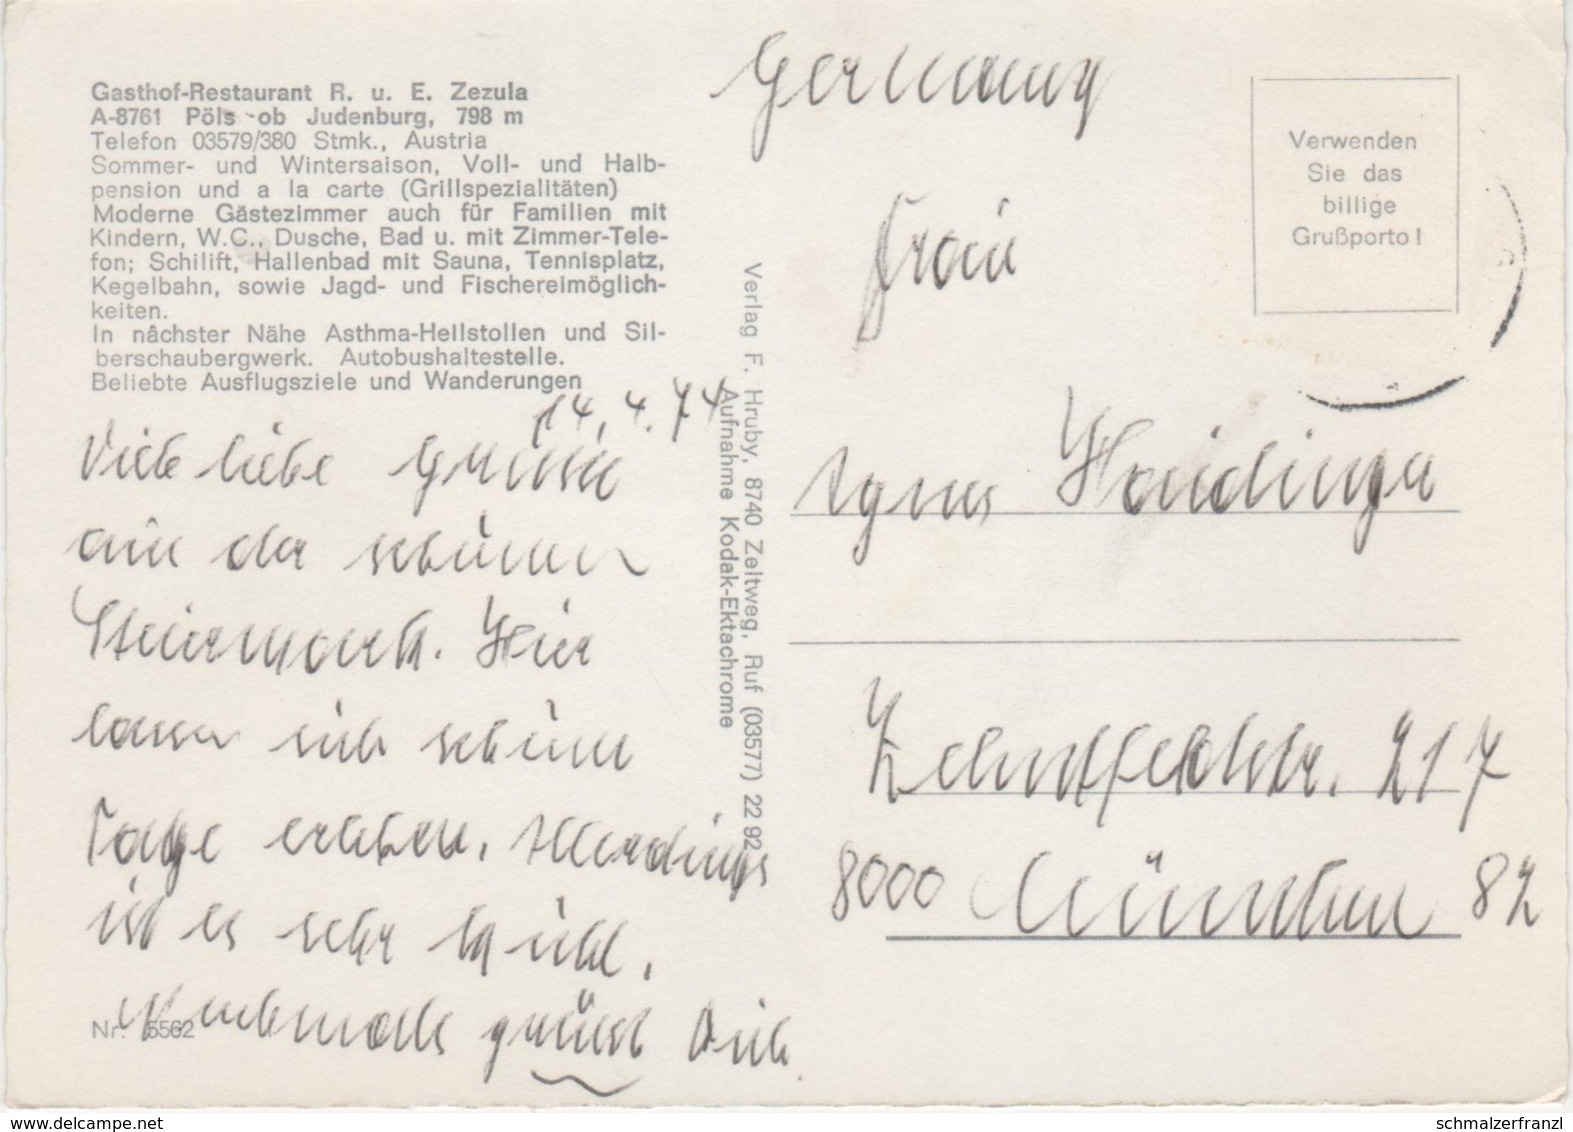 Gasthof-Restaurant R. u. E. Zezula
A-8761 Pöls ob Judenburg, 798 m
Telefon 03579/380 Stmk., Austria
Sommer- und Wintersaison, Voll- und Halb-
pension und a la carte (Grillspezialitäten)
Moderne Gästezimmer auch für Familien mit
Kindern, W.C., Dusche, Bad u. mit Zimmer-Tele-
fon; Schilift, Hallenbad mit Sauna, Tennisplatz,
Kegelbahn, sowie Jagd- und Fischereimöglich-
keiten.
In nächster Nähe Asthma-Heilstollen und Sil-
berschaubergwerk. Autobushaltestelle.
Beliebte Ausflugsziele und Wanderungen
14.4.74
Viele liebe Grüsse
aus der schönen
Steiermark. Hier
lassen sich schöne
Tage erleben. Allerdings
ist es sehr kühl.
Nochmals grüsst Dich
Nr. 5562
Verlag F. Hruby, 8740 Zeltweg, Ruf (03577) 22 92
Aufnahme Kodak-Ektachrome
Germany
Verwenden
Sie das
billige
Grußporto!
Frau
Agnes Haidinger
Zehntfeldstr. 217
8000 München 82
www.delcampe.net
schmalzerfranzl